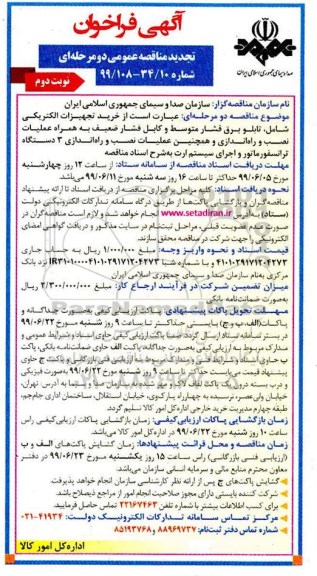 آگهی فراخوان
تجدید مناقصه عمومی دو مرحله‌ای
شماره ۹۹/۱۰۸-۳۴/۱۰
نوبت دوم
صدا و سیمای جمهوری اسلامی ایران
نام سازمان مناقصه‌گزار: سازمان صدا و سیمای جمهوری اسلامی ایران
موضوع مناقصه دو مرحله‌ای: عبارت است از خرید تجهیزات الکتریکی
شامل، تابلو برق فشار متوسط و کابل فشار ضعیف به همراه عملیات
نصب و راه‌اندازی و همچنین عملیات نصب و راه‌اندازی ۳ دستگاه
ترانسفورماتور و اجرای سیستم ارت به‌شرح اسناد مناقصه
مهلت دریافت اسناد مناقصه از سامانه ستاد: از ساعت ۱۲ روز چهارشنبه
مورخ ۹۹/۰۶/۰۵ تا ساعت ۱۶ روز سه شنبه مورخ ۹۹/۰۶/۱۱ می‌باشد.
نحوه دریافت اسناد: کلیه مراحل برگزاری مناقصه از دریافت اسناد تا ارائه پیشنهاد
مناقصه‌گران و بازگشایی پاکت‌ها از طریق درگاه سامانه تدارکات الکترونیکی دولت
(ستاد) به‌آدرس www.setadiran.ir انجام خواهد شد و لازم است مناقصه‌گران در
صورت عدم عضویت قبلی، مراحل ثبت‌نام در سایت مذکور و دریافت گواهی امضای
الکترونیکی را جهت شرکت در مناقصه محقق سازند.
قیمت اسناد و نحوه واریز وجه: مبلغ ۱/۰۰۰/۰۰۰ ریال به حساب جاری
مرکزی به‌نام سازمان صدا و سیمای جمهوری اسلامی ایران
میزان تضمین شرکت در فرآیند ارجاع کار: مبلغ ۲/۳۰۰/۰۰۰/۰۰۰ ریال می‌باشد
به‌صورت ضمانت‌نامه بانکی
مهلت تحویل پاکات پیشنهادی: پاکت ارزیابی کیفی به‌صورت جداگانه و
پاکات (الف، ب و ج) بایستی حداکثر تا ساعت ۹ روز شنبه مورخ ۹۹/۰۶/۲۲
خیابان ولی‌عصر، نرسیده به چهارراه پارک‌وی، خیابان استقلال، ساختمان اداری جام‌جم،
طبقه چهارم مدیریت خرید خارجی اداره‌کل امور کالا تسلیم گردد.
زمان بازگشایی پاکات ارزیابی‌کیفی: زمان گشایش پاکات ارزیابی کیفی راس
ساعت ۱۰ روز شنبه مورخ ۹۹/۰۶/۲۲ در اداره‌کل امور کالا می‌باشد.
زمان مناقصه و محل قرائت پیشنهادها: زمان گشایش پاکت‌های الف و ب
(ارزیابی فنی بازرگانی) راس ساعت ۱۵ روز یکشنبه مورخ ۹۹/۰۶/۲۳ در دفتر
معاون محترم منابع مالی و سرمایه انسانی سازمان می‌باشد.
گشایش پاکت‌های ج پس از ارائه نظر کارشناسی سازمان انجام خواهد پذیرفت.
شرکت کننده بایستی دارای مجوز صلاحیت انجام امور از مراجع ذیصلاح باشد.
برای کسب اطلاعات بیشتر با شماره تلفن ۲۲۱۶۷۴۶۳ تماس حاصل فرمایید.
مرکز تماس سامانه تدارکات الکترونیک دولت: ۴۱۹۳۴-۰۲۱
شماره تماس دفتر ثبت‌نام: ۸۸۹۶۹۷۳۷ و ۸۵۱۹۳۷۶۸
اداره‌کل امور کالا